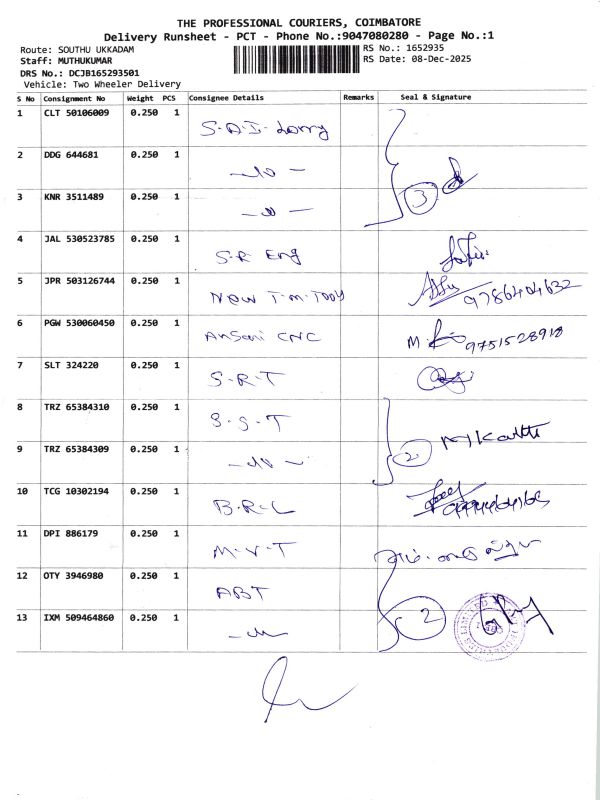 THE PROFESSIONAL COURIERS, COIMBATORE
Delivery Runsheet - PCT - Phone No.:9047080280 - Page No.:1
Route: SOUTHU UKKADAM
RS No.: 1652935
Staff: MUTHUKUMAR
RS Date: 08-Dec-2025
DRS No.: DCJB165293501
Vehicle: Two Wheeler Delivery
S No Consignment No Weight PCS Consignee Details Remarks Seal & Signature
1 CLT 50106009 0.250 1 S.A.I. Lorry
2 DDG 644681 0.250 1
3 KNR 3511489 0.250 1 3
4 JAL 530523785 0.250 1 S.R. Eng
5 JPR 503126744 0.250 1 New T.M. Tooy 9786404632
6 PGW 530060450 0.250 1 Ansari CNC M. 9751528918
7 SLT 324220 0.250 1 S.R.T
8 TRZ 65384310 0.250 1 S.S.T
9 TRZ 65384309 0.250 1 2
10 TCG 10302194 0.250 1 B.R.L
11 DPI 886179 0.250 1 M.V.T
12 OTY 3946980 0.250 1 ABT
13 IXM 509464860 0.250 1 2